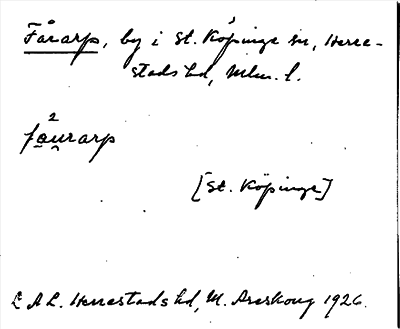 Fårarp, by i St. Köpinge sn, Herre-
stads hd, Mlm. l.
fa̤u̯rarp
[St. Köpinge]
LAL. Herrestads hd, M. Areskoug 1926.